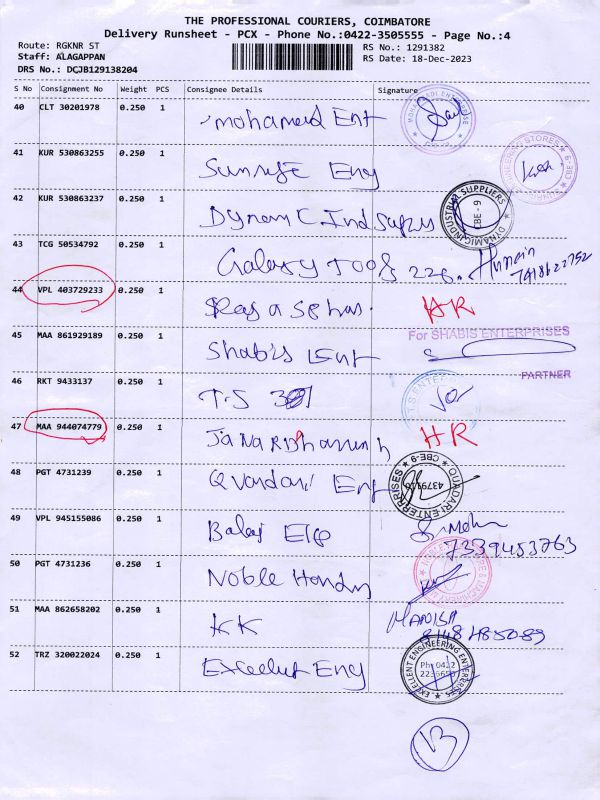 THE PROFESSIONAL COURIERS, COIMBATORE
Delivery Runsheet - PCX - Phone No.:0422-3505555 - Page No.:4
Route: RGKNR ST
RS No.: 1291382
Staff: ALAGAPPAN
RS Date: 18-Dec-2023
DRS No.: DCJB129138204
S No Consignment No Weight PCS Consignee Details Signature
40 CLT 30201978 0.250 1 mohamed Ent
41 KUR 530863255 0.250 1 Sunrise Eng
42 KUR 530863237 0.250 1 Dynamic Ind
DYNAMIC INDUSTRIAL SUPPLIERS CBE - 9
43 TCG 50534792 0.250 1 Galaxy Tools 226. Hussain
7418622752
44 VPL 403729233 0.250 1 HR
45 MAA 861929189 0.250 1 Shabis Ent
For SHABIS ENTERPRISES
PARTNER
46 RKT 9433137 0.250 1 T.S
T.S ENTER
47 MAA 944074779 0.250 1 HR
48 PGT 4731239 0.250 1 Ent
QUADARI ENTERPRISES CBE-9
49 VPL 945155086 0.250 1 Balaj
Mohan
7339453763
50 PGT 4731236 0.250 1 Noble
51 MAA 862658202 0.250 1 KK MANISH
52 TRZ 320022024 0.250 1 Excellent Eng
EXELLENT ENGINEERING ENTERPRISES
Ph: 0422
13